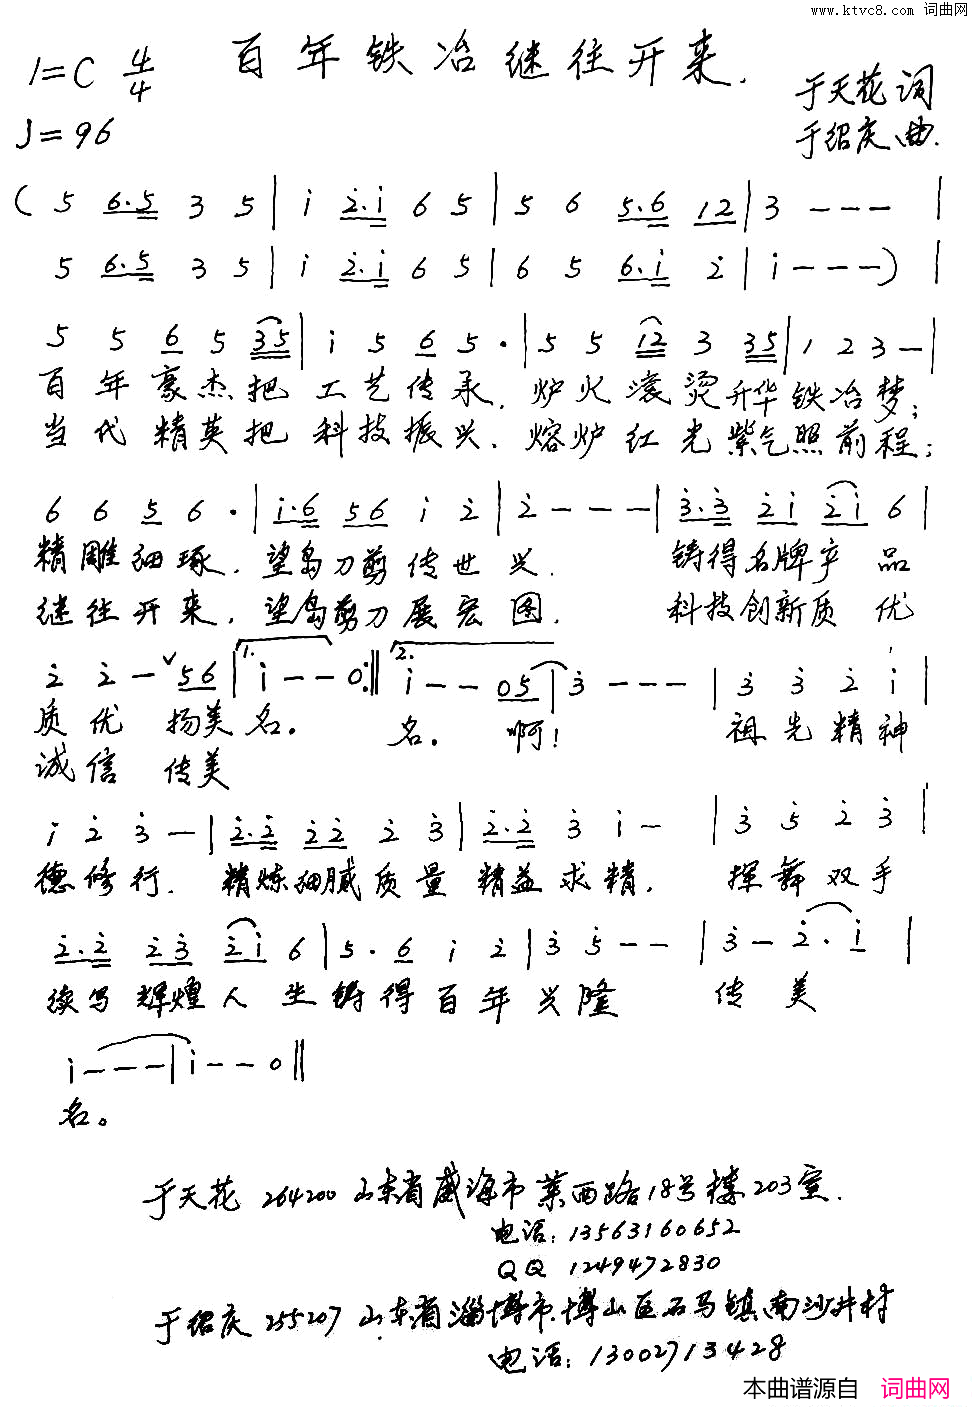 www.ktvc8.com 词曲网
百年铁冶继往开来.
1=C 4/4
于天花 词
♩=96
于绍庆 曲.
( 5 6.5 3 5 | i 2.i 6 5 | 5 6 5.6 12 | 3 - - - |
5 6.5 3 5 | i 2.i 6 5 | 6 5 6.i 2 | i - - - ) |
5 5 6 5 35 | i 5 6 5 · | 5 5 12 3 35 | 1 2 3 - |
百年豪杰把工艺传承.炉火滚烫升华铁冶梦;
当代精英把科技振兴.熔炉红光紫气照前程;
6 6 5 6 · | i.6 56 i 2 | 2 - - - | 3.3 2i 2i 6 |
精雕细琢.望岛刀剪传世兴. 铸得名牌产品
继往开来.望岛剪刀展宏图. 科技创新质优
2 2 - ∨ 56 | 1. i - - 0 :‖ 2. i - - 05 | 3 - - - | 3 3 2 i |
质优 扬美名。 名。 啊! 祖先精神
诚信 传美
i 2 3 - | 2.2 22 2 3 | 2.2 3 i - | 3 5 2 3 |
德修行. 精炼细腻质量 精益求精. 挥舞双手
2.2 23 2i 6 | 5.6 i 2 | 3 5 - - | 3 - 2.i |
续写辉煌人生铸得百年兴隆 传美
i - - - | i - - 0 ‖
名。
于天花 264200 山东省威海市莱西路18号楼203室.
电话: 13563160652
QQ 1249472830
于绍庆 255207 山东省淄博市.博山区石马镇南沙井村
电话: 13002713428
本曲谱源自 词曲网